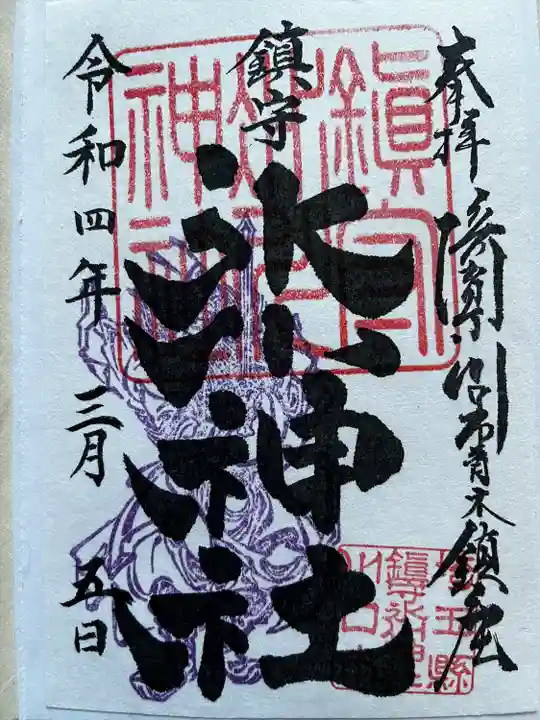 奉拝
川口市青木鎮座
鎮守
氷川神社
令和四年 三月 五日
鎮守
氷川
神社
埼玉縣
鎮守氷川神社
川口市